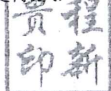 程新
贵印